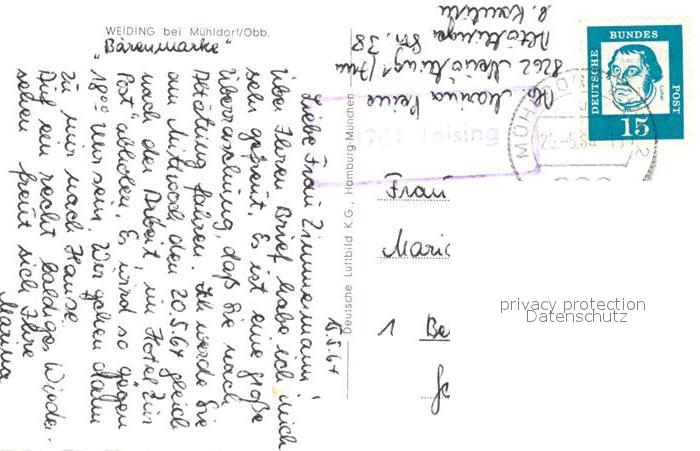 WEIDING bei Mühldorf/Obb.
"Bärenmarke"
15.5.64
Liebe Frau Zimmermann!
Über Ihren Brief habe ich mich
sehr gefreut. Es ist eine große
Überraschung, daß Sie nach
Altötting fahren. Ich werde Sie
am Mittwoch den 20.5.64 gleich
nach der Arbeit, im Hotel "zur
Post" abholen. Es wird so gegen
18°° Uhr sein. Wir gehen dann
zu mir nach Hause.
Auf ein recht baldiges Wieder-
sehen freut sich Ihre
Marina
Deutsche Luftbild K.G., Hamburg-München
Abs. Marina
8262 Neuötting/Inn
Altöttinger Str. 38
DEUTSCHE BUNDESPOST
Luther
15
MÜHLDORF
Frau
Mari
1 Be
privacy protection
Datenschutz